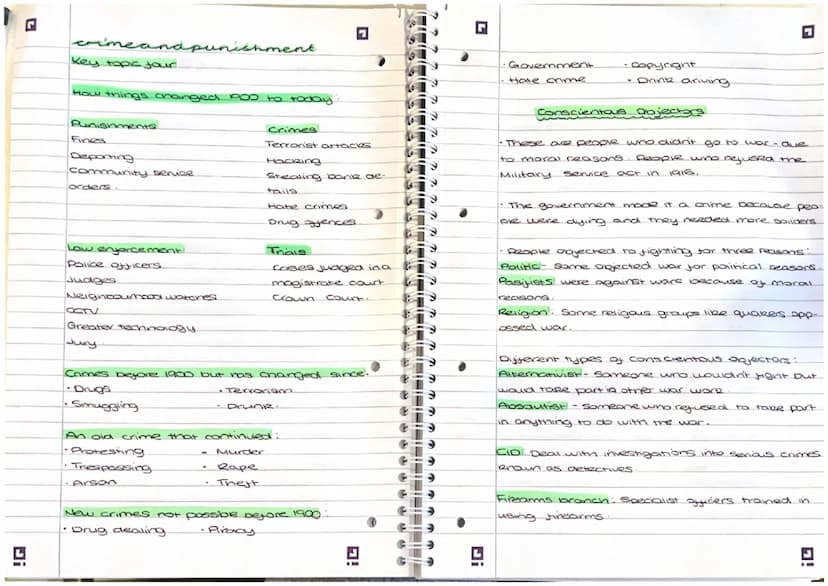 crimeandpunishment
Key topic four
How things changed 1900 to today:
Punishments
Fines
Deporting
Community service
orders.
Crimes
Terrorist attacks
Hacking
Stealing bank de-
tails
Hate crimes
Drug offences
Law enforcement
Police officers
Judges
Neighbourhood watches
CCTV
Greater technology
Jury
Trials
Cases judged in a
magistrate court
Crown court.
Crimes before 1900 but has changed since.
· Drugs · Terrorism
· Smuggling · Drunk.
An old crime that continued:
· Protesting · Murder
· Trespassing · Rape
· Arson · Theft
New crimes not possible before 1900:
· Drug dealing · Piracy
· Government · Copyright
· Hate crime · Drink driving
Conscientous objectors
· These are people who didn't go to war - due
to moral reasons. People who refused the
Military Service act in 1916.
· The government made it a crime because peo
ple were dying and they needed more soliders
· People objected to fighting for three reasons:
Politic - Some objected war for political reasons.
Pasifists were against wars because of moral
reasons.
Religion: Some religous groups like quakers opp-
osed war.
Different types of conscientous objectors:
Alternativist - Someone who wouldn't fight but
would take part in other war work.
Absoultist - Someone who refused to take part
in anything to do with the war.
CID: Deal with investigations into serious crimes
known as detectives.
Firearms branch: Specialist officers trained in
using firearms.